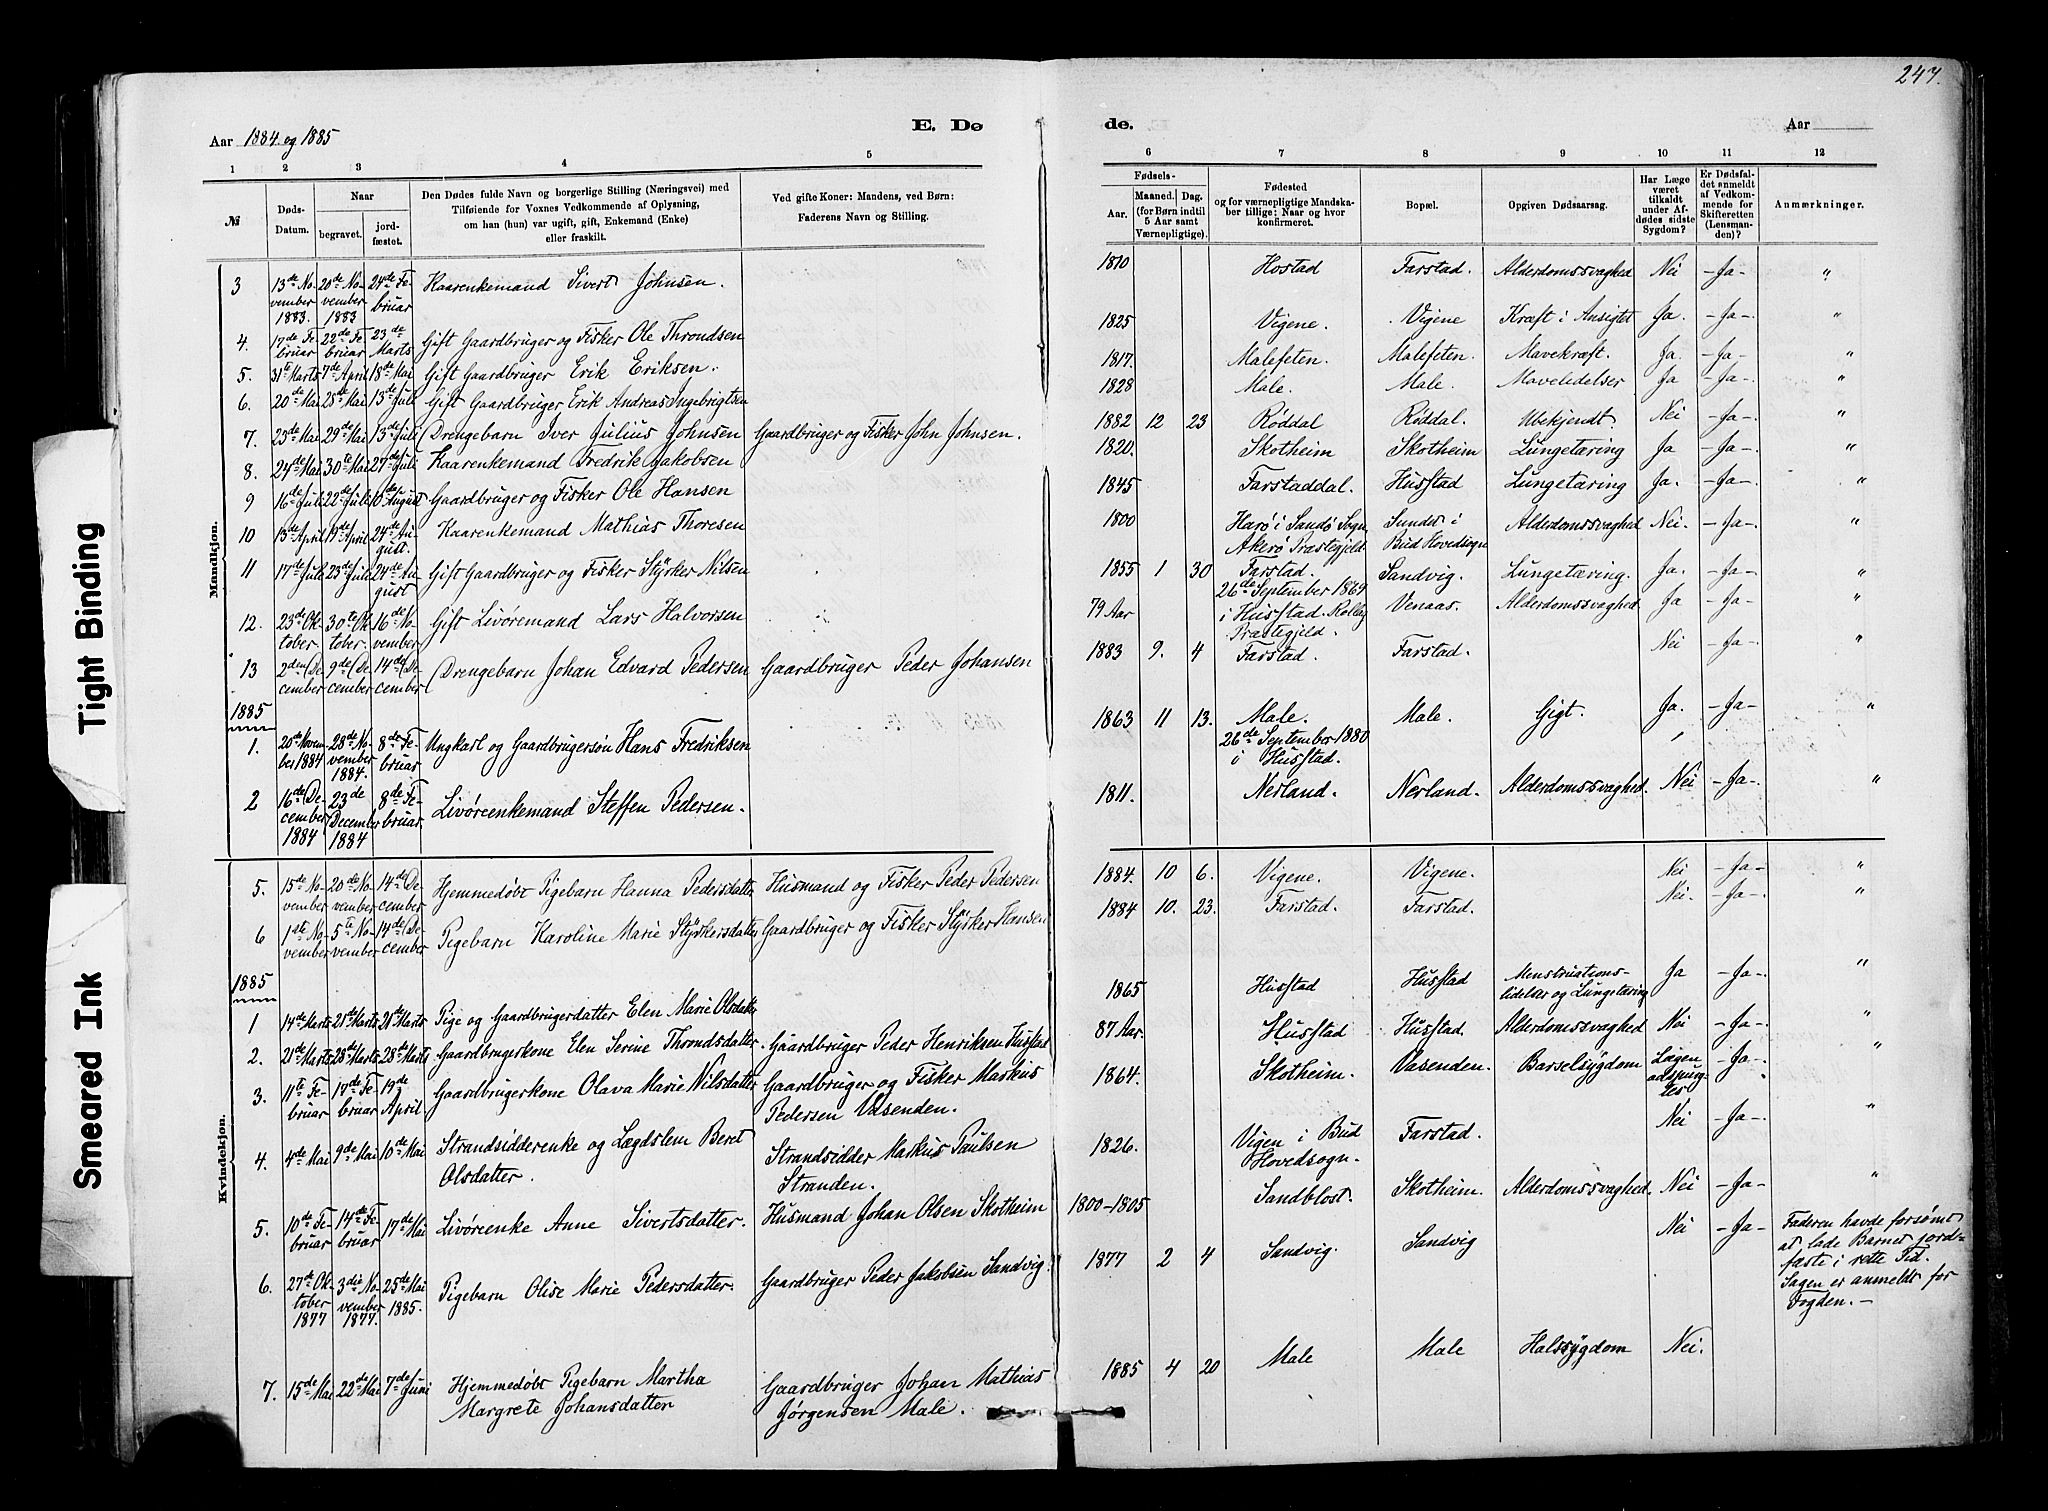 247.
Aar 1884 og 1885
E. Dø
de.
Aar
1 2 3 4 5
6 7 8 9 10 11 12
№
Døds-Datum.
Naar
begravet.
jordfæstet.
Den Dødes fulde Navn og borgerlige Stilling (Næringsvei) med
Tilføiende for Voxnes Vedkommende af Oplysning,
om han (hun) var ugift, gift, Enkemand (Enke)
eller fraskilt.
Ved gifte Koner: Mandens, ved Børn:
Faderens Navn og Stilling.
Fødsels-
Aar.
Maaned. Dag.
(for Børn indtil 5 Aar samt Værnepligtige).
Fødested
og for værnepligtige Mandskaber tillige: Naar og hvor konfirmeret.
Bopæl.
Opgiven Dødsaarsag.
Har Læge været tilkaldt under Afdødes sidste Sygdom?
Er Dødsfaldet anmeldt af Vedkommende for Skifteretten (Lensmanden)?
Anmærkninger.
Mandkjøn.
3 13de November 1883. 20de November 1883 24de Februar Kaarenkemand Sivert Johnsen. 1810 Hostad Farstad. Alderdomssvaghed Nei - Ja - "
4. 17de Februar 22de Februar 23de Marts Gift Gaardbruger og Fisker Ole Throndsen 1825 Vigene. Vigene Kræft i Ansigtet Ja. - Ja - "
5. 31te Marts 7de April 18de Mai Gift Gaardbruger Erik Eriksen. 1817. Malefeten. Malefeten. Mavekræft. Ja. - Ja - "
6. 20de Mai 25de Mai 13de Juli Gift Gaardbruger Erik Andreas Ingebrigtsen 1828 Male. Male. Mavelidelser Ja - Ja - "
7. 23de Mai 29de Mai 13de Juli Drengebarn Iver Julius Johnsen Gaardbruger og Fisker John Johnsen. 1882 12 23 Røddal Røddal. Ubekjendt. Nei - Ja - "
8. 24de Mai 30te Mai 27de Juli Kaarenkemand Fredrik Jakobsen 1820. Skotheim Skotheim Lungetæring Ja - Ja - "
9 16de Juli 22de Juli 10de August Gaardbruger og Fisker Ole Hansen 1845 Farstaddal. Husstad Lungetæring Ja. - Ja - "
10 13de April 19de April 24de August. Kaarenkemand Mathias Thoresen 1800 Harø i Sandø Sogn Akerø Præstegjeld Sundet i Bud Hovedsogn Alderdomssvaghed Nei. - Ja - "
11 17de Juli 23de Juli 24de August Gift Gaardbruger og Fisker Styrker Nilsen 1855 1 30 Farstad. 26de September 1869 i Husstad Præstegjeld. Sandvig. Lungetæring. Ja. - Ja - "
12. 23de Oktober. 30te Oktober. 16de November. Gift Livøremand Lars Halvorsen 79 Aar Venaas. Alderdomssvaghed Ja - Ja - "
13 2den December 9de December 14de December Drengebarn Johan Edvard Pedersen Gaardbruger Peder Johansen 1883 9. 4 Farstad. Farstad. Nei - Ja - "
1885
1. 20de November 1884 28de November 1884. 8de Februar Ungkarl og Gaardbrugersøn Hans Fredriksen 1863 11 13. Male. 26de September 1880 i Husstad. Male. Gigt. Ja. - Ja - "
2 16de December 1884 23de December 1884 8de Februar Livøreenkemand Steffen Pedersen. 1811. Nerland. Nerland. Alderdomssvaghed. Nei - Ja - "
Kvindekjøn.
5. 15de November 20de November 14de December Hjemmedøbt Pigebarn Hanna Pedersdatter Husmand og Fisker Peder Pedersen 1884. 10 6. Vigene. Vigene. Nei - Ja - "
6 1ste November 5te November 14de December Pigebarn Karoline Marie Styrkersdatter Gaardbruger og Fisker Styrker Hansen 1884 10. 23. Farstad. Farstad. Nei. - Ja - "
1885
1 14de Marts 21de Marts 21de Marts Pige og Gaardbrugerdatter Elen Marie Olsdatter 1865 Husstad Husstad Menstruationslidelser og Lungetæring Ja - Ja - "
2. 21de Marts 28de Marts 28de Marts Gaardbrugerkone Elen Serine Throndsdatter. Gaardbruger Peder Henriksen Husstad 87 Aar. Husstad Husstad. Alderdomssvaghed Nei - Ja - "
3. 11te Februar 17de Februar 19de April Gaardbrugerkone Olava Marie Nilsdatter Gaardbruger og Fisker Markus Pedersen Vasenden. 1864. Skotheim. Vasenden. Barselsygdom Lægen adspurgtes - Ja - "
4. 4de Mai 9de Mai 10de Mai Strandsidderenke og Lægdslem Beret Olsdatter. Strandsidder Markus Paulsen Stranden. 1826. Vigen i Bud Hovedsogn. Farstad. Nei - Ja - "
5. 10de Februar 14de Februar 17de Mai Livøreenke Anne Sivertsdatter. Husmand Johan Olsen Skotheim 1800-1805 Sandblost. Skotheim. Alderdomssvaghed. Nei - Ja - "
6. 27de Oktober 1877 3die November 1877. 25de Mai 1885. Pigebarn Olise Marie Pedersdatter. Gaardbruger Peder Jakobsen Sandvig. 1877 2 4 Sandvig. Sandvig Nei - Ja - Faderen havde forsømt
at lade Barnet jord-
fæste i rette Tid.
Sagen er anmeldt for
Fogden. -
7. 15de Mai 22de Mai 7de Juni Hjemmedøbt Pigebarn Martha Margrete Johansdatter Gaardbruger Johan Mathias Jørgensen Male. 1885 4 20 Male Male Halssygdom Nei.
Tight Binding
Smeared Ink